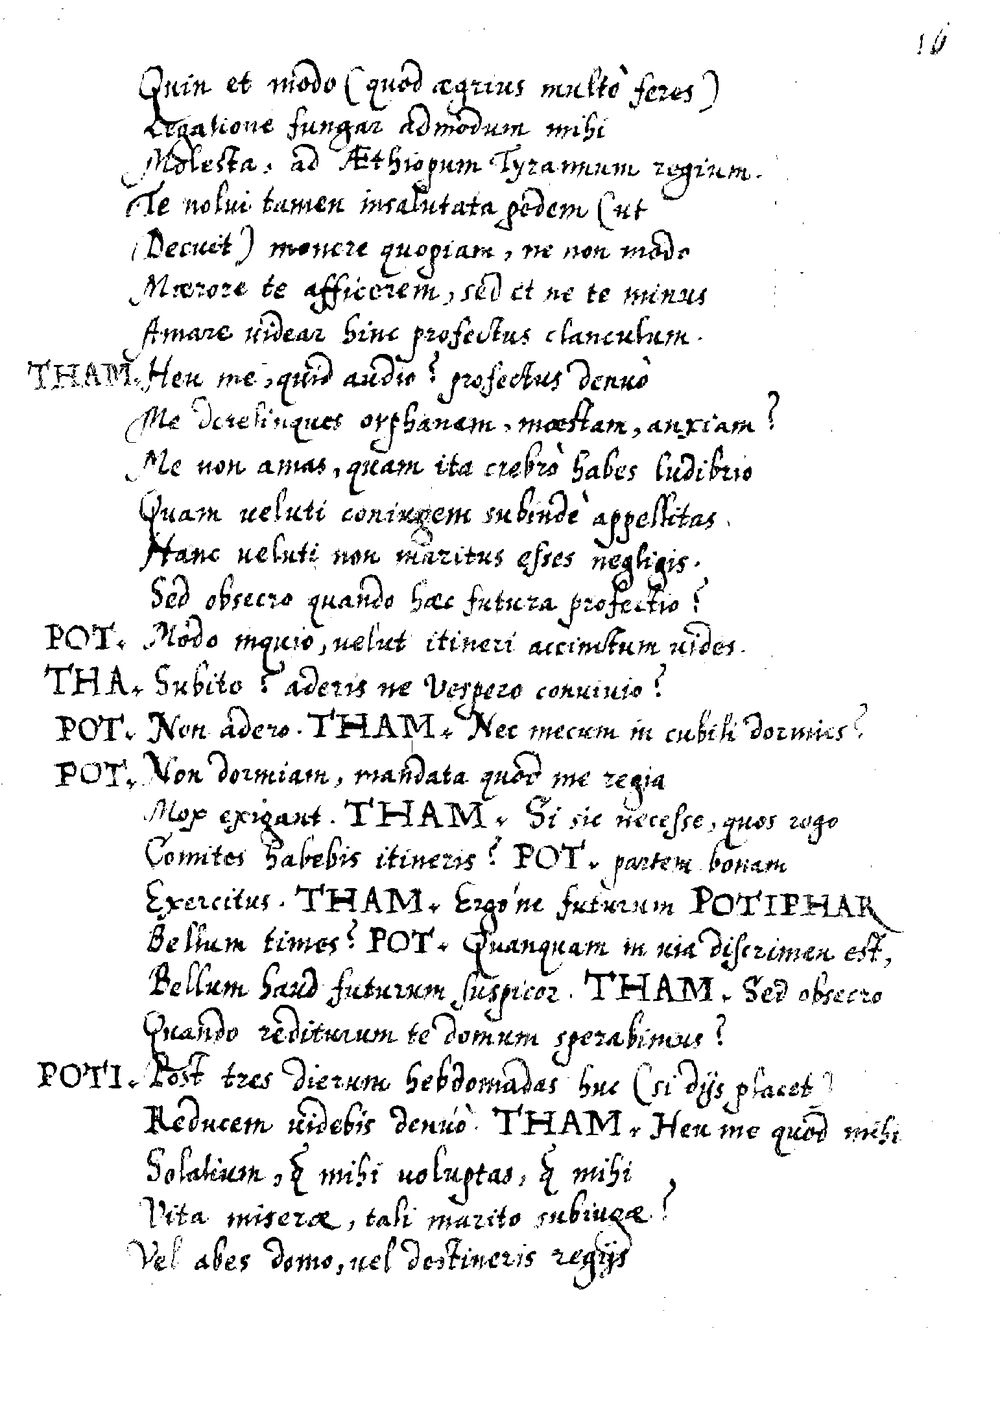 16
Quin et modo (quod ægrius multò feres)
Legatione fungar admodum mihi
Molesta, ad Æthiopum Tyrannum regium.
Te nolui tamen insalutata pedem (ut
Decuit) mouere quopiam, ne non modo
Mærore te afficerem, sed et ne te minus
Amare videar hinc profectus clanculum.
THAM. Heu me, quid audio? profectus denuò
Me derelinques orphanam, mœstam, anxiam?
Me non amas, quam ita crebrò habes ludibrio
Quam veluti coniugem subindè appellitas.
Hanc veluti non maritus esses negligis.
Sed obsecro quando hæc futura profectio?
POT. Modo inquio, velut itineri accinctum vides.
THA. Subito? aderis ne Vespero conuiuio?
POT. Non adero. THAM. Nec mecum in cubili dormies?
POT. Non dormiam, mandata quod me regia
Mox exigant. THAM. Si sic necesse, quos rogo
Comites habebis itineris? POT. partem bonam
Exercitus. THAM. Ergo'ne futurum POTIPHAR
Bellum times? POT. Quanquam in via discrimen est,
Bellum haud futurum suspicor. THAM. Sed obsecro
Quando rediturum te domum sperabimus?
POTI. Post tres dierum hebdomadas huc (si dijs placet)
Reducem videbis denuò. THAM. Heu me quod mihi
Solatium, q̃ mihi voluptas, q̃ mihi
Vita miseræ, tali marito subiugæ?
Vel abes domo, vel destineris regijs